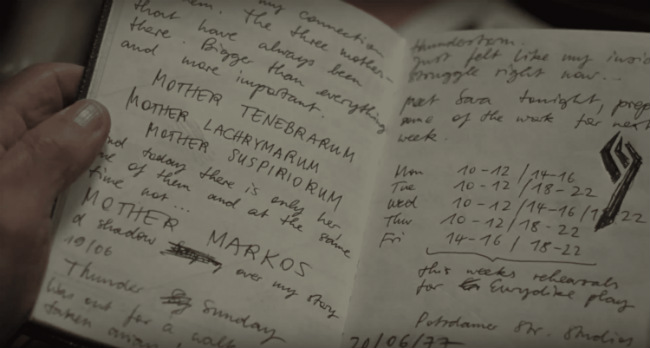 my connection
them. The three mother-
that have always been
there. Bigger than everything
and more important.
MOTHER TENEBRARUM
MOTHER LACHRYMARUM
MOTHER SUSPIRIORUM
And today there is only her
one of them and at the same
time not...
MOTHER MARKOS
a shadow over my story
19/06
Thunder Sunday
Was out for a walk
thunderstorm.
Just felt like my
struggle right now...
meet Sara tonight,
some of the work for next
week.
Mon 10-12/14-16
Tue 10-12/18-22
Wed 10-12/14-16/18-22
Thur 10-12/18-22
Fri 14-16/18-22
this weeks rehearsals
for Eurydike play
Potsdamer Str. Studios
20/06/77